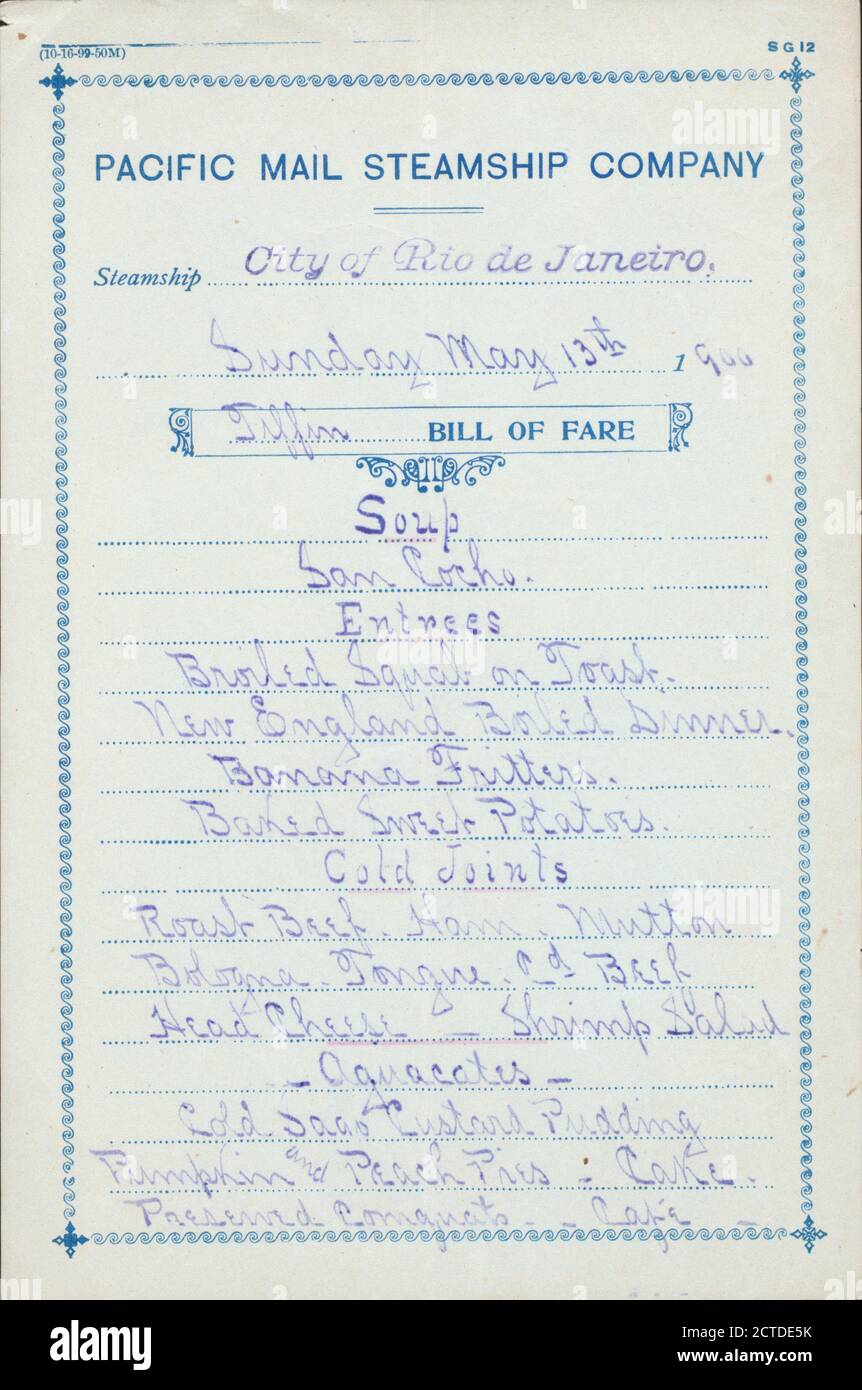 (10-16-99-50M)
S G 12
PACIFIC MAIL STEAMSHIP COMPANY
Steamship City of Rio de Janeiro.
Sunday May 13th 1900
Tiffin BILL OF FARE
Soup
San Cocho.
Entrees
Broiled Squab on Toast.
New England Boiled Dinner.
Banana Fritters.
Baked Sweet Potatoes.
Cold Joints
Roast Beef. Ham. Mutton
Bologna. Tongue. Cd Beef
Head Cheese — Shrimp Salad
- Aguacates -
Cold Sago Custard Pudding
Pumpkin and Peach Pies - Cake.
Preserved Comquats - - Cafe -
alamy
Image ID: 2CTDE5K
www.alamy.com